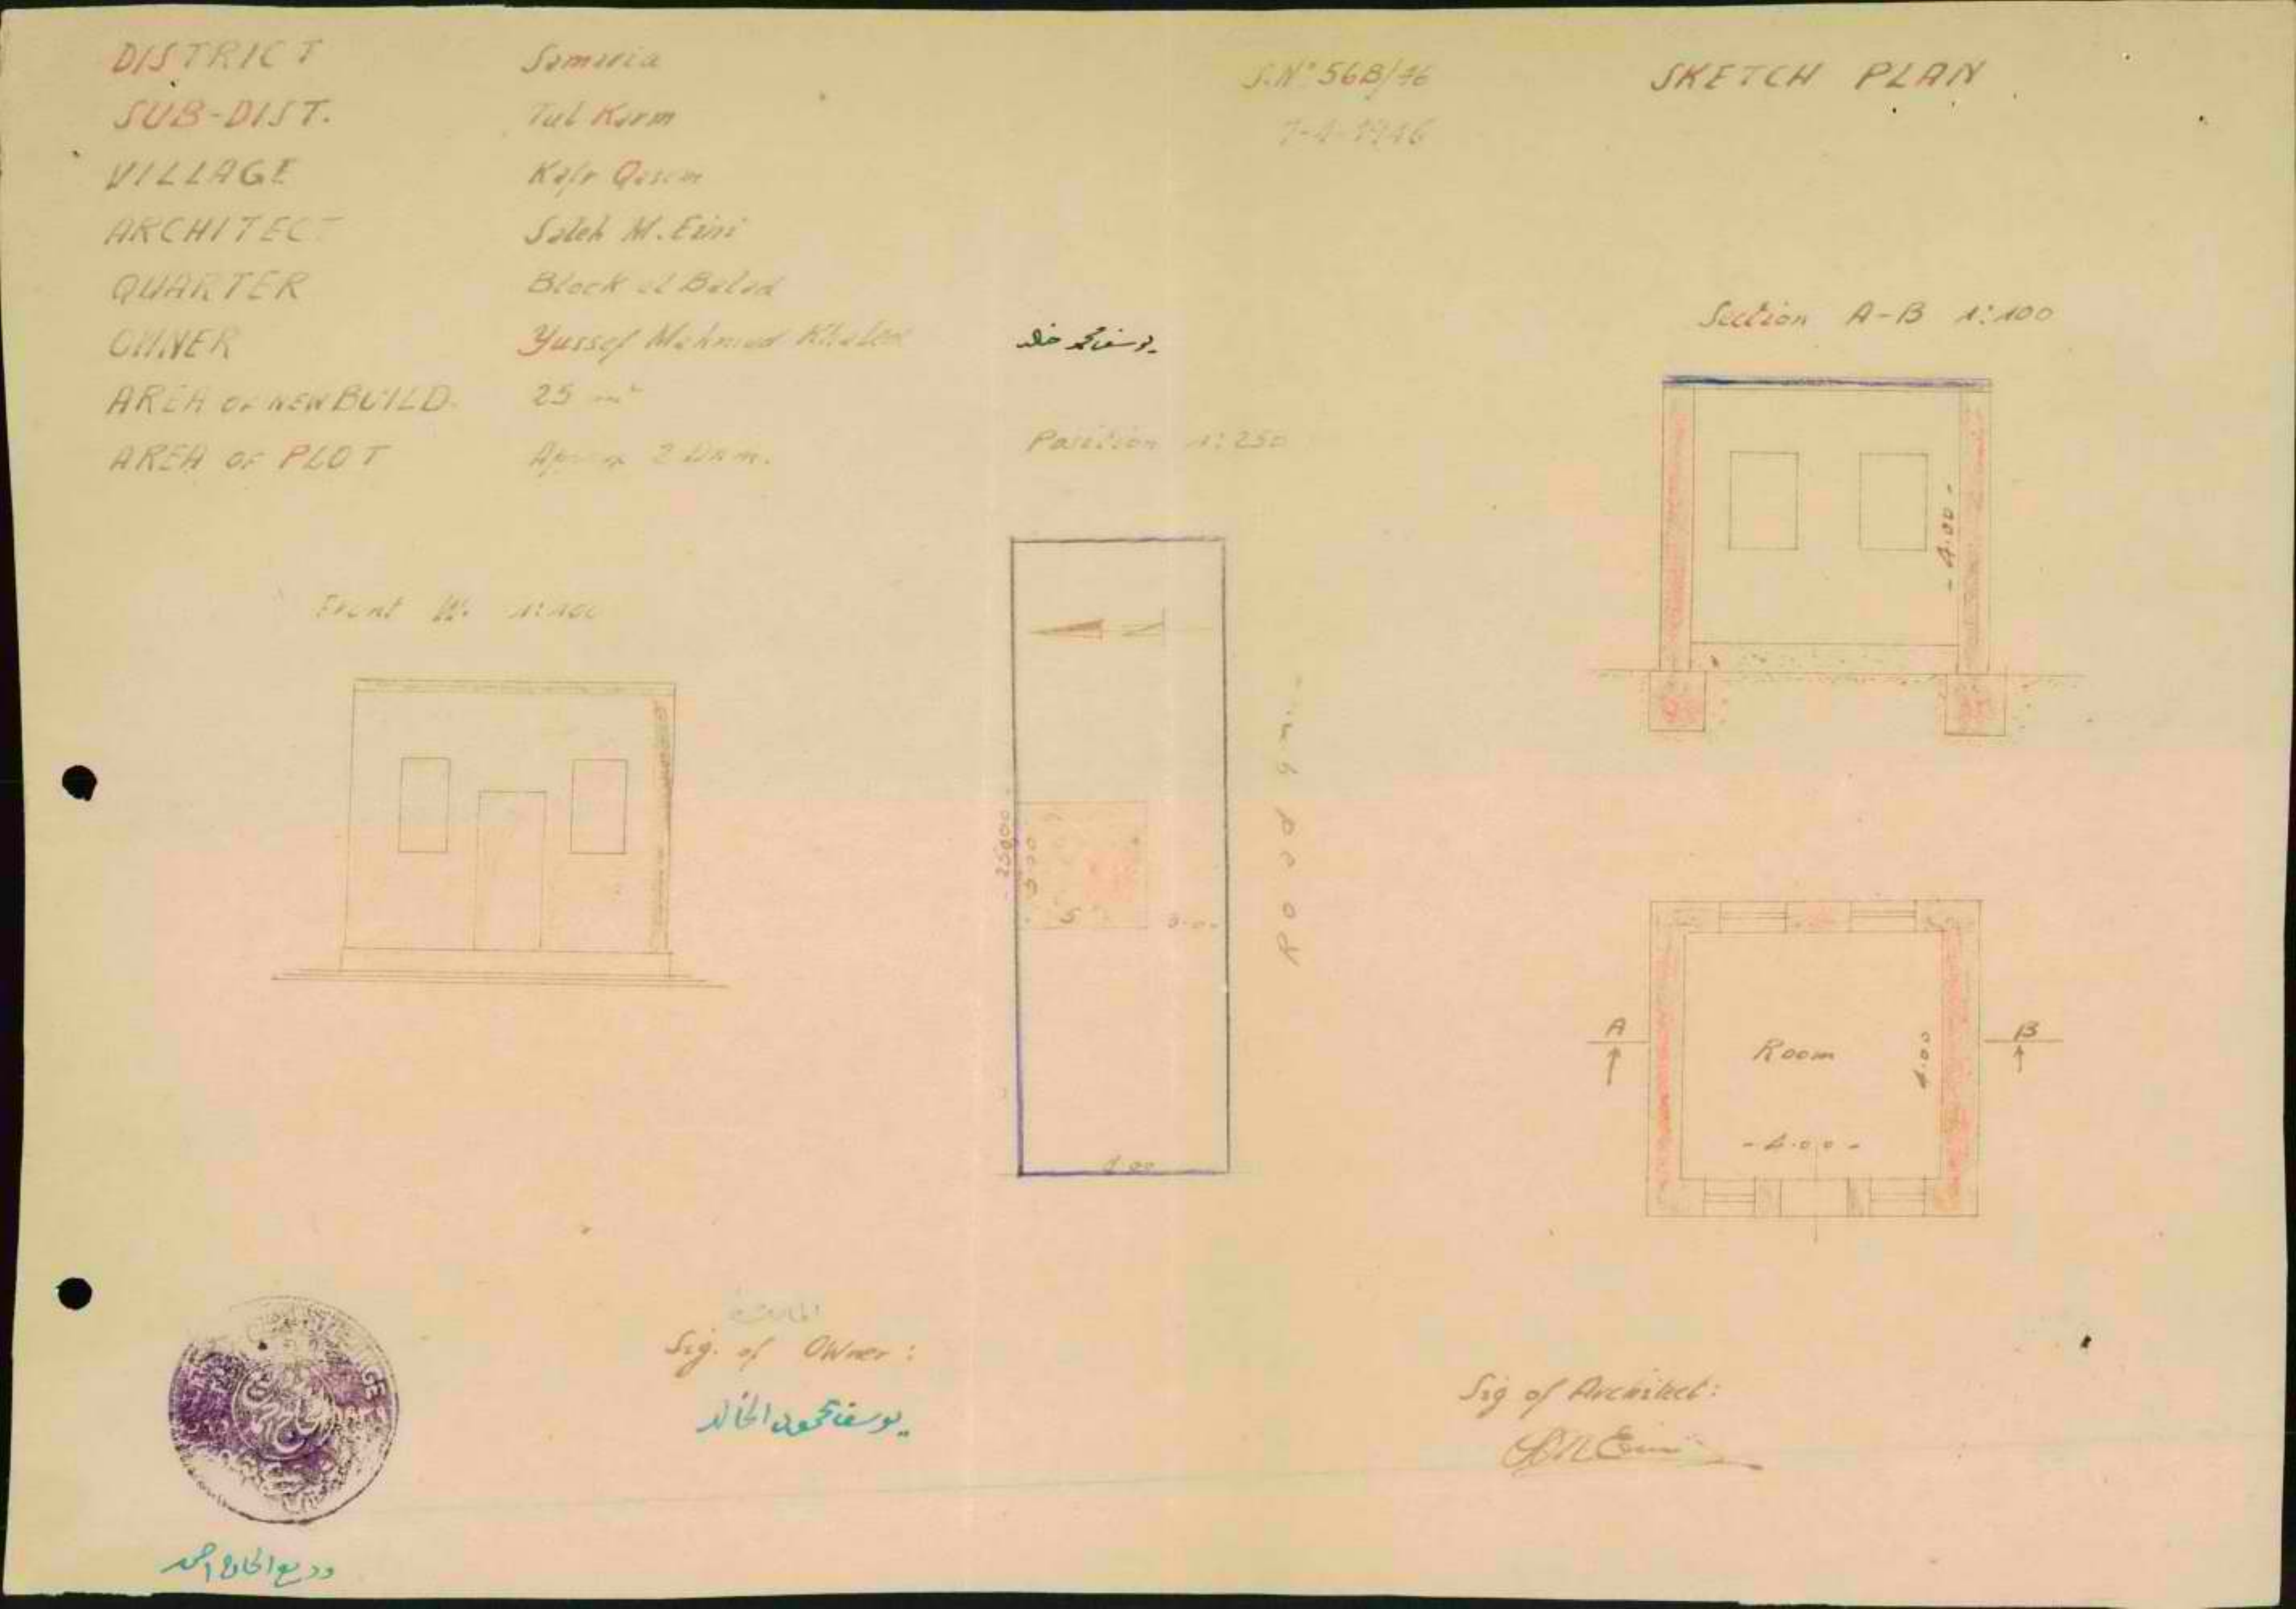 DISTRICT Samaria
SUB-DIST. Tul Karm
VILLAGE Kafr Qasem
ARCHITECT Saleh M. Eini
QUARTER Block el Balad
OWNER Yussef Mahmud Khaled
يوسف محمود خالد
AREA OF NEW BUILD. 25 m²
AREA OF PLOT 2
S.N° 56B/46
7-4-1946
SKETCH PLAN
Front W. 1:100
Position 1:250
N
- 25.00 -
5.00
5
3.00
8.00
Road 9 m.
Section A-B 1:100
- 4.00 -
A
B
Room
4.00
- 4.00 -
المالك
Sig. of Owner:
يوسف محمود الخالد
Sig of Architect:
وديع الحاج احمد